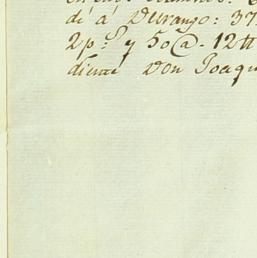 dé á Durango: 37
2 p.s y 50 @. 12 tt
diente Don Joaqu